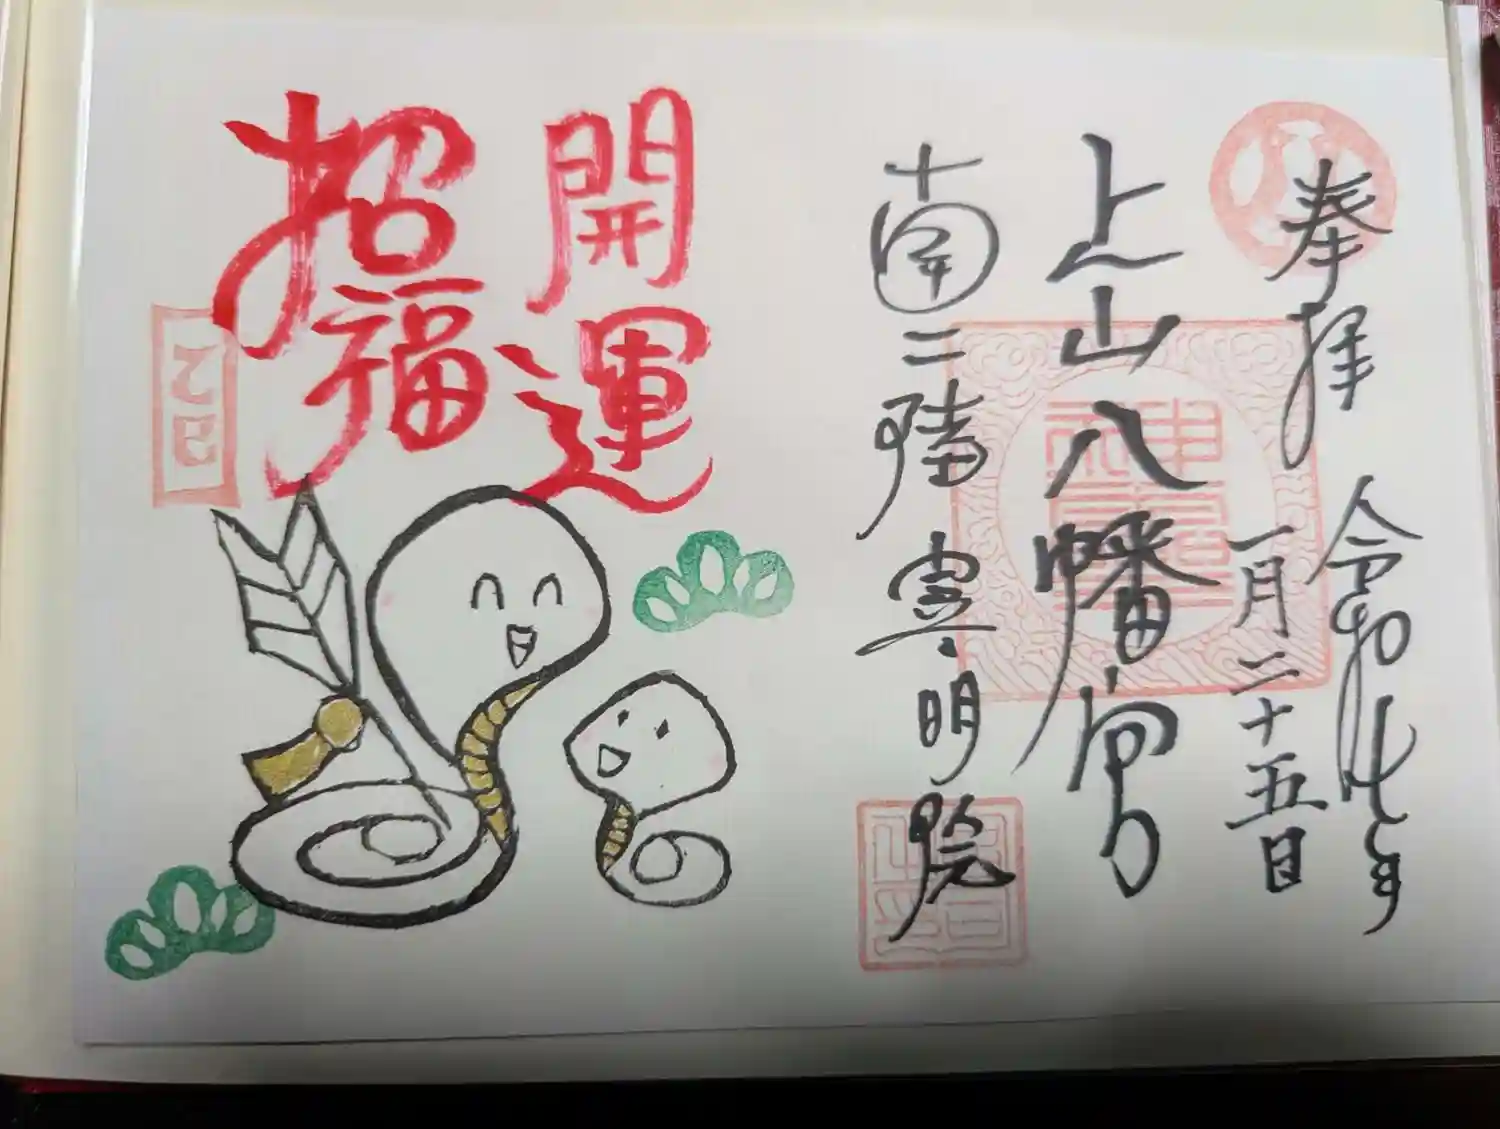 奉拝
令和七年
一月二十五日
上山八幡宮
南三陸
明院
開運
招福
乙巳